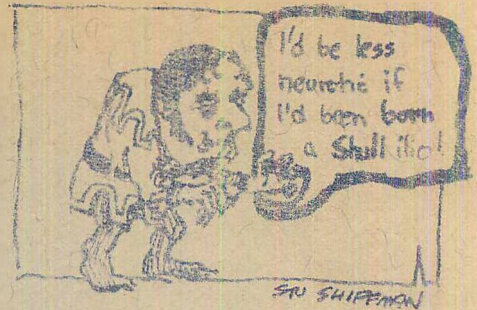 I'd be less
neurotic if
I'd been born
a
STU SHIFFMAN